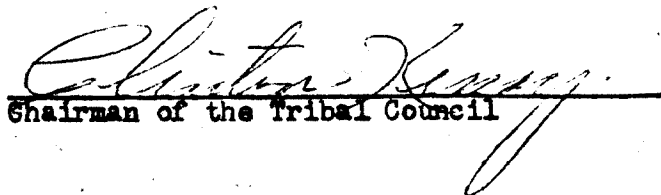 Clinton
Chairman of the Tribal Council